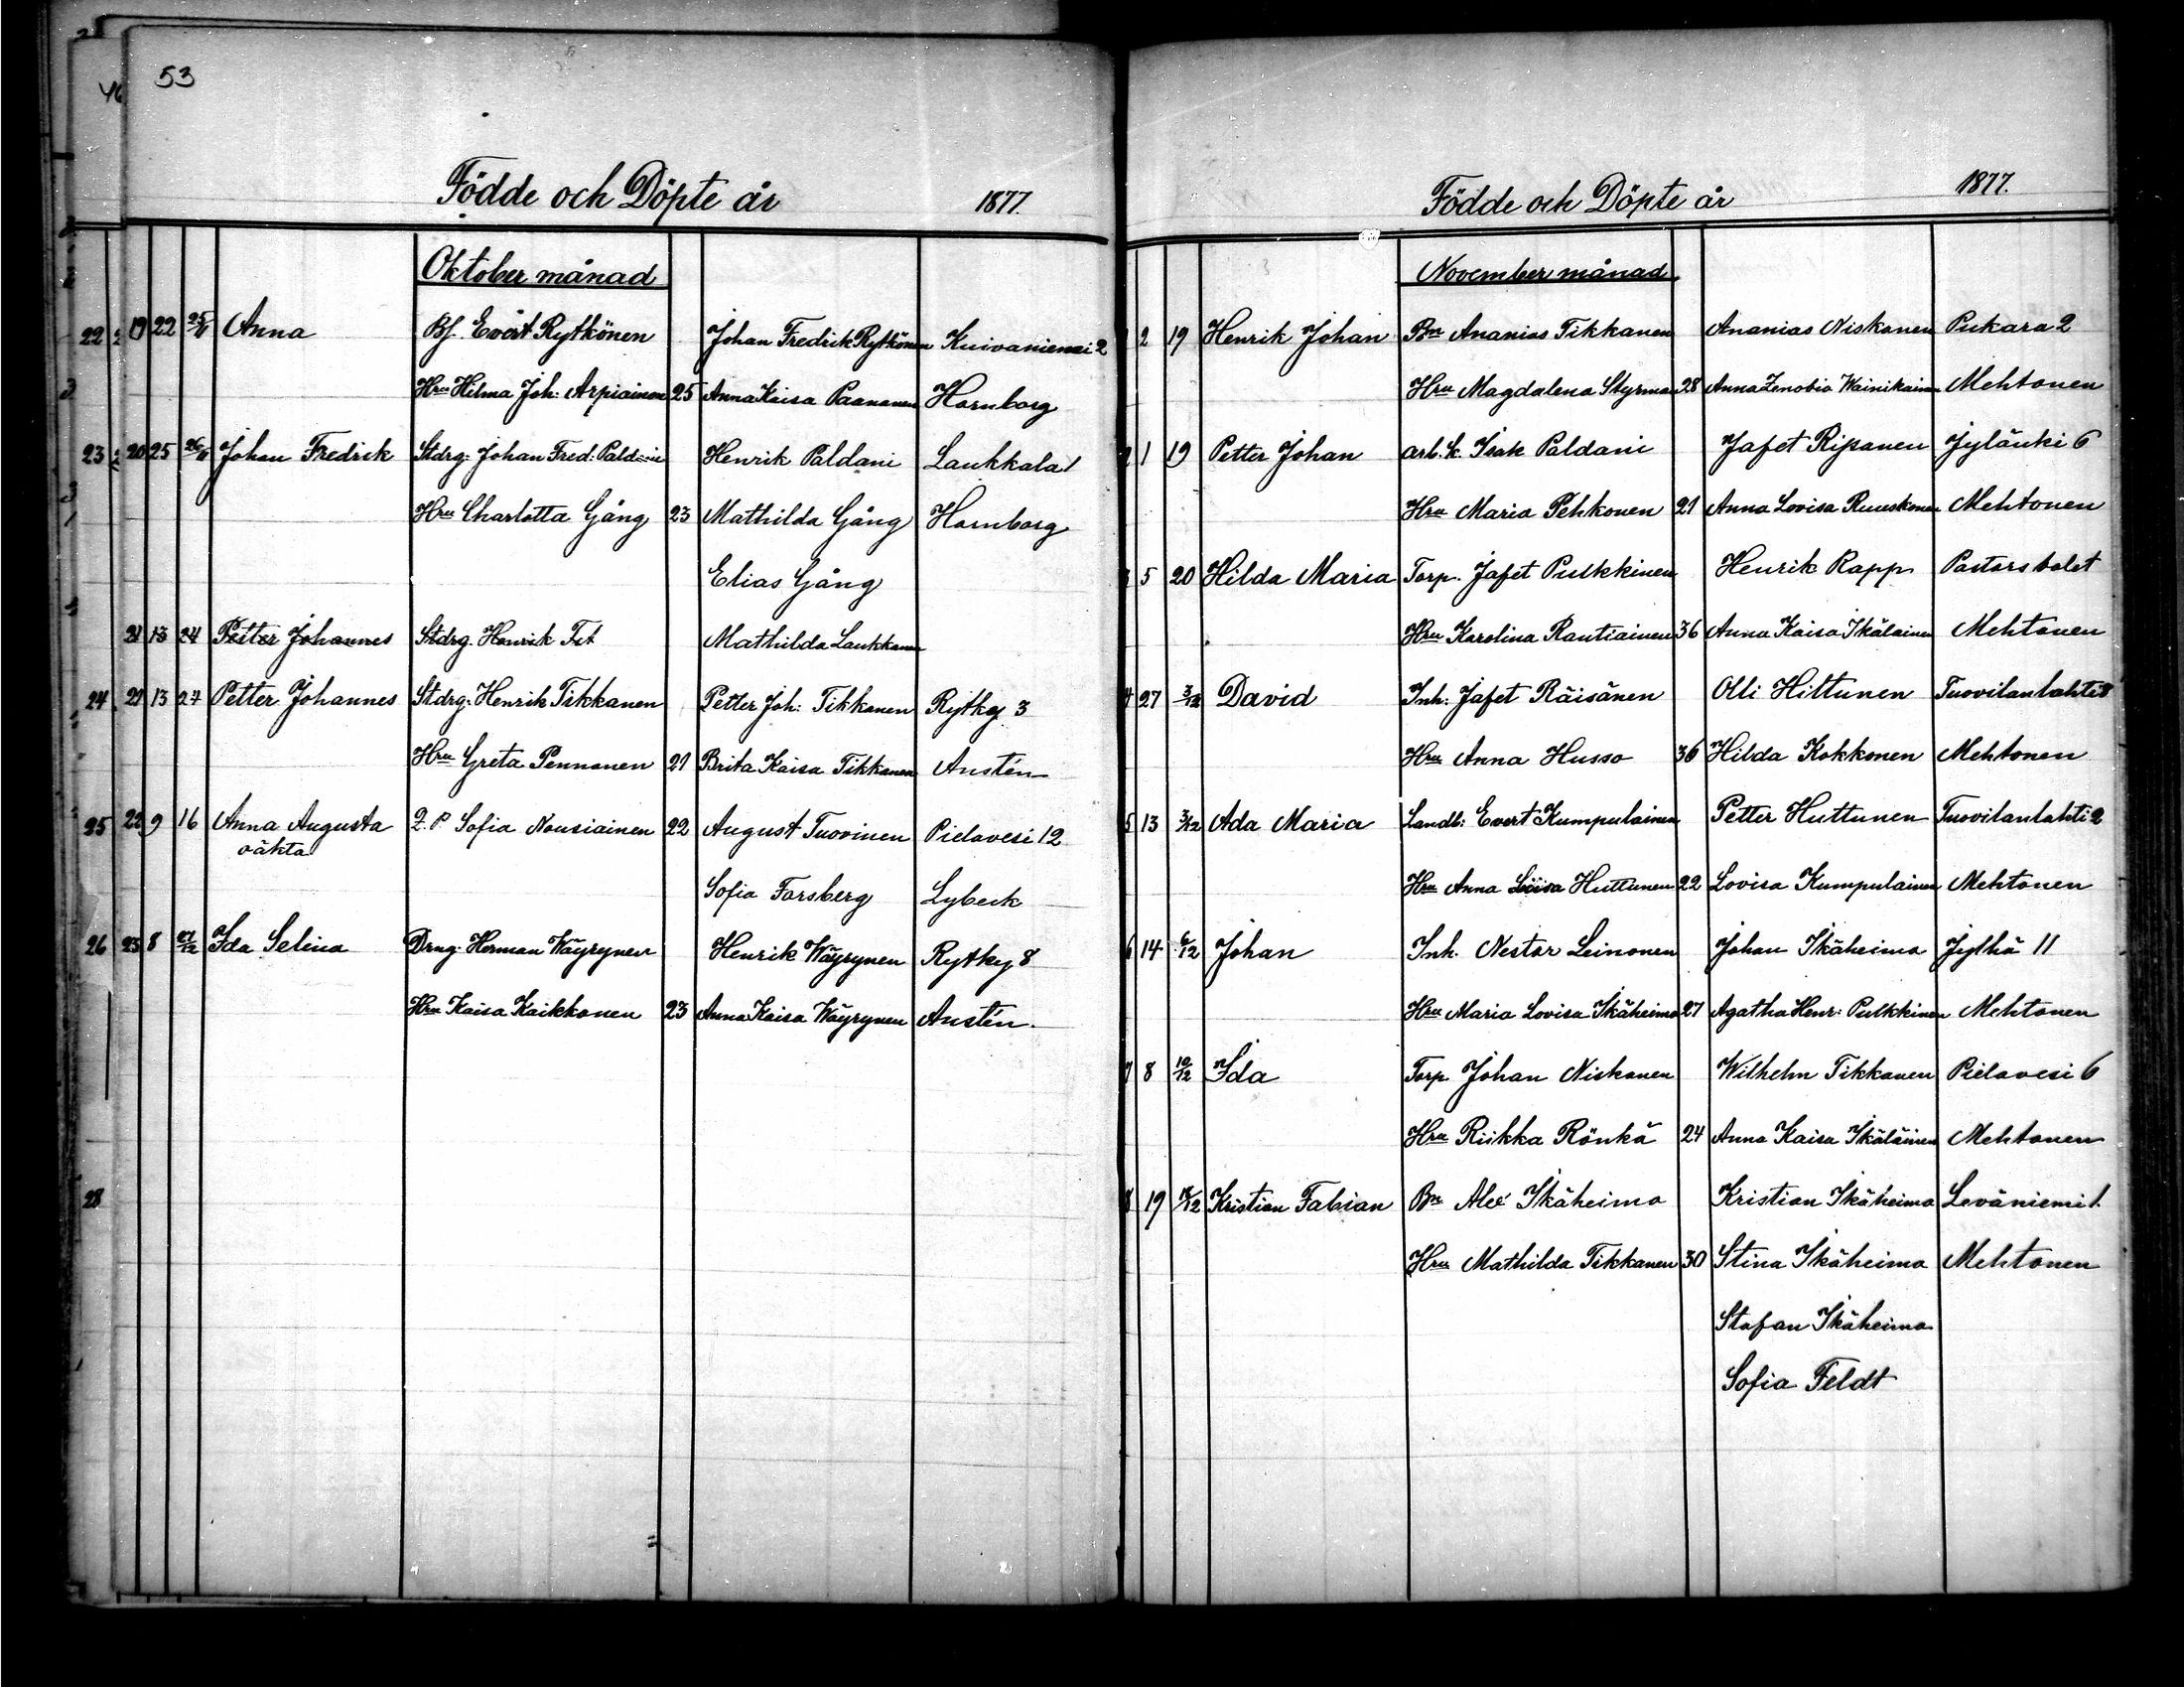 53
Födde och Döpte år 1877.
Oktober månad
22 19 22 25/11 Anna Bf. Evert Rytkönen Johan Fredrik Rytkönen Kuivaniemi 2
Hru Hilma Joh: Arpiainen 25 Anna Kaisa Paananen Hornborg
23 20 25 26/11 Johan Fredrik Stdrg: Johan Fred: Paldani Henrik Paldani Laukkala 1
Hru Charlotta Gång 23 Mathilda Gång Hornborg
Elias Gång
21 13 24 Petter Johannes Stdrg. Henrik Mathilda Laukkanen
24 21 13 27 Petter Johannes Stdrg: Henrik Tikkanen Petter Joh: Tikkanen Rytky 3
Hru Greta Pennanen 21 Brita Kaisa Tikkanen Austén
25 22 9 16 Anna Augusta Q. P Sofia Nousiainen 22 August Tuovinen Pielavesi 12
oäkta
Sofia Forsberg Lybeck
26 23 8 27/12 Ida Selina Drng: Herman Wäyrynen Henrik Wäyrynen Rytky 8
Hru Kaisa Kaikkonen 23 Anna Kaisa Wäyrynen Austén.
28
Födde och Döpte år 1877.
November månad
1 2 19 Henrik Johan Bn Ananias Tikkanen Ananias Niskanen Pukara 2
Hru Magdalena Styrman 28 Anna Zenobia Wainikainen Mehtonen
2 1 19 Petter Johan arb. k. Isak Paldani Jafet Ripanen Jylänki 6
Hru Maria Pehkonen 21 Anna Lovisa Ruuskonen Mehtonen
3 5 20 Hilda Maria Torp. Jafet Pulkkinen Henrik Rapp Pastorsbolet
Hru Karolina Rantiainen 36 Anna Kaisa Ikäläinen Mehtonen
4 27 3/12 David Inh: Jafet Räisänen Olli Hiltunen Tuovilanlahti 8
Hru Anna Husso 36 Hilda Kokkonen Mehtonen
5 13 3/12 Ada Maria Landb: Evert Kumpulainen Petter Huttunen Tuovilanlahti 2
Hru Anna Liisa Huttunen 22 Lovisa Kumpulainen Mehtonen
6 14 6/12 Johan Inh. Nestor Leinonen Johan Ikäheimo Jylhä 11
Hru Maria Lovisa Ikäheimo 27 Agatha Henr: Pulkkinen Mehtonen
7 8 10/12 Ida Torp. Johan Niskanen Wilhelm Tikkanen Pielavesi 6
Hru Riikka Rönkä 24 Anna Kaisa Ikäläinen Mehtonen
8 19 18/12 Kristian Fabian Bn Alex Ikäheimo Kristian Ikäheimo Leväniemi 1.
Hru Mathilda Tikkanen 30 Stina Ikäheimo Mehtonen
Stafan Ikäheimo
Sofia Feldt